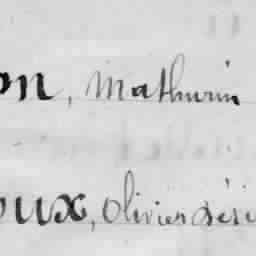 on, Mathurin
oux, Olivier Dési